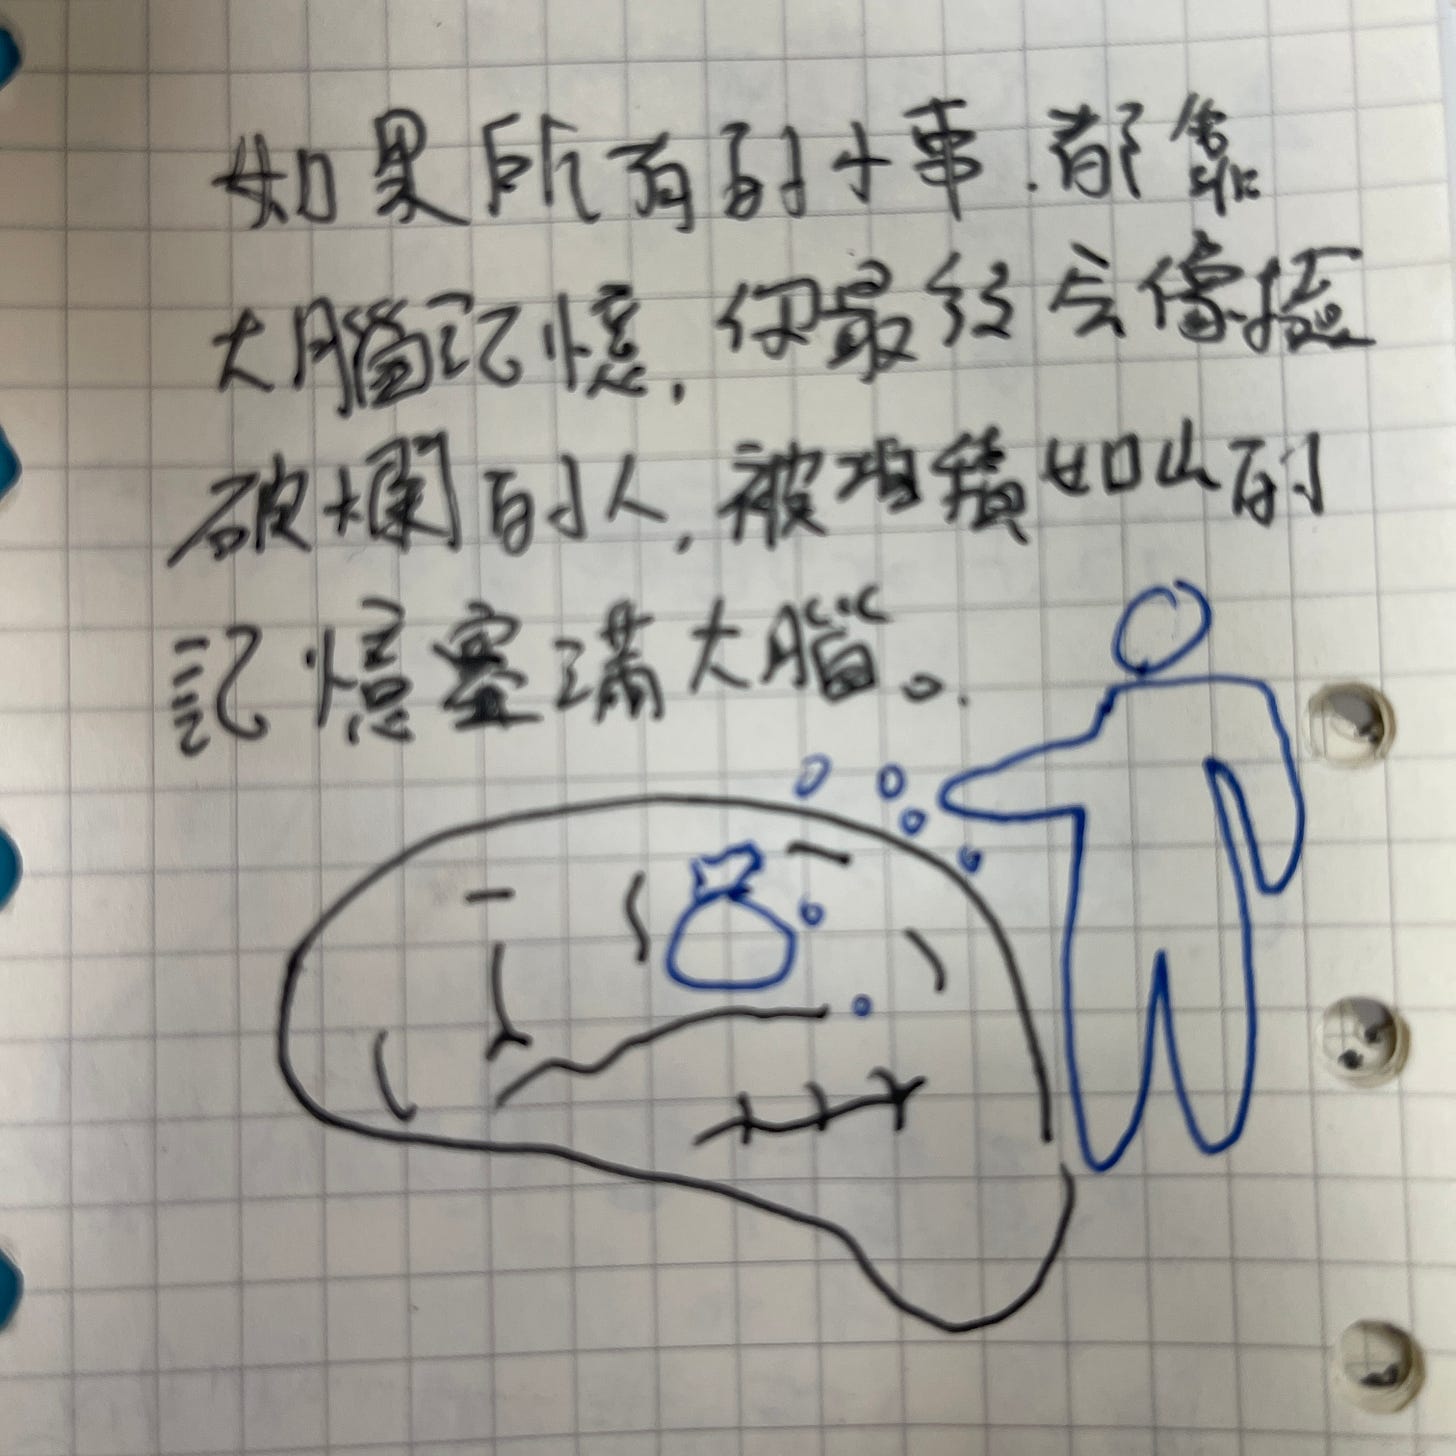 如果所有的小事.都靠
大腦記憶,你最終会像撿
破爛的人,被堆積如山的
記憶塞滿大腦。